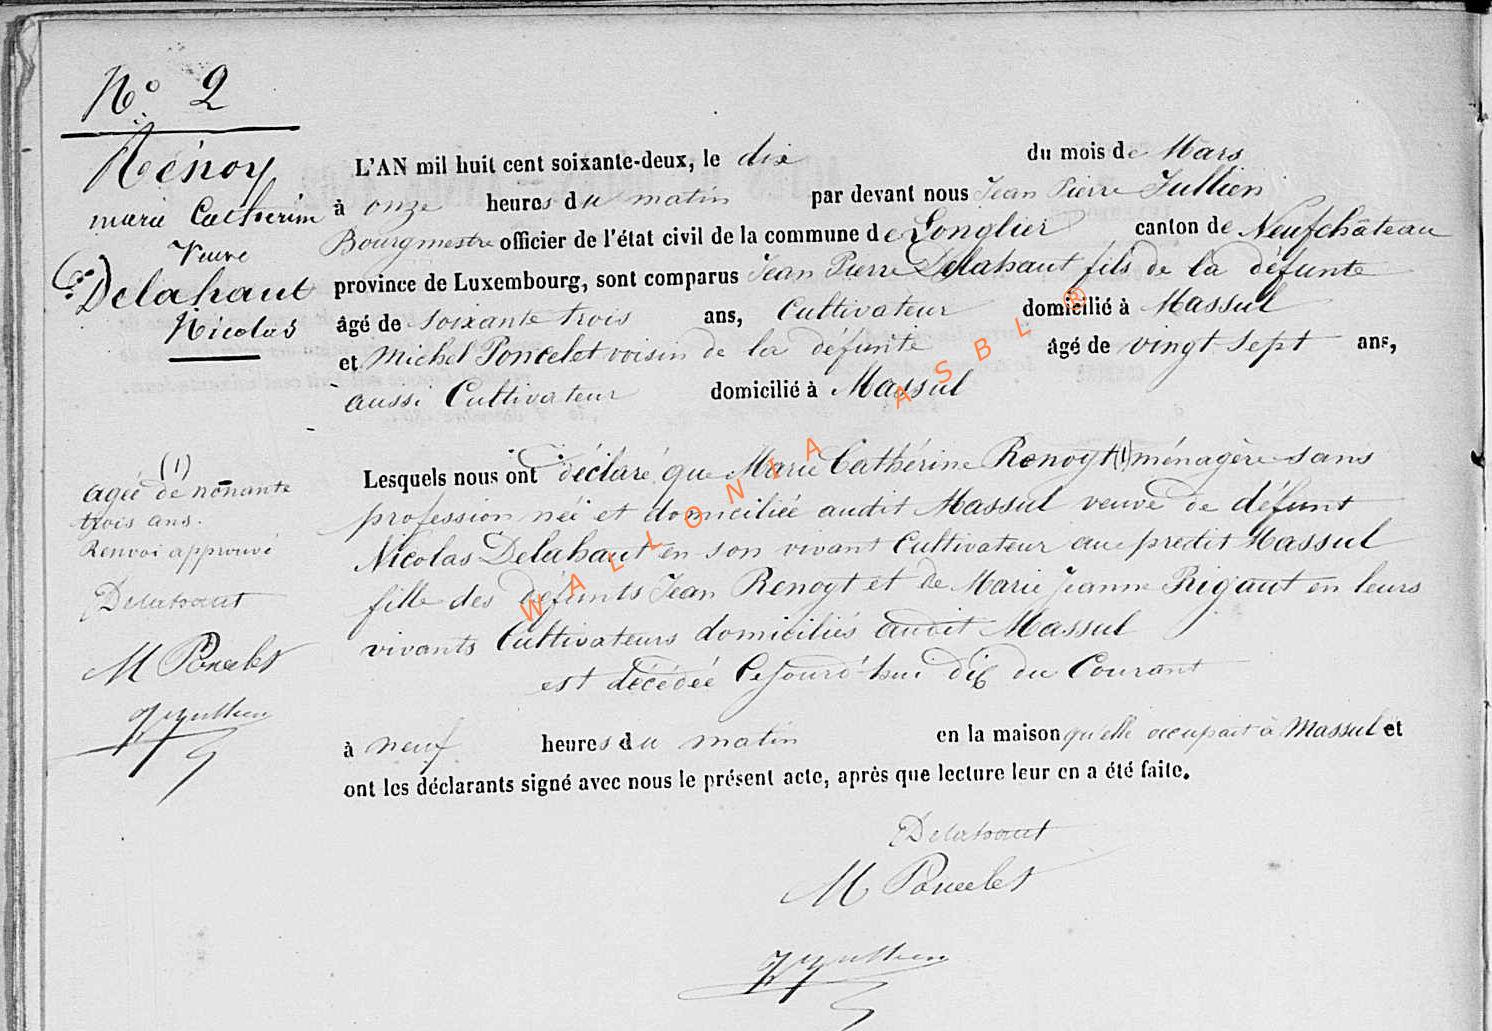 N° 2
Rénoy
marie Catherine
Veuve
Delahaut
Nicolas
L'AN mil huit cent soixante-deux, le dix du mois de Mars
à onze heures du matin par devant nous Jean Pierre Jullien
Bourgmestre officier de l'état civil de la commune de Longlier canton de Neufchâteau
province de Luxembourg, sont comparus Jean Pierre Delahaut fils de la défunte
âgé de soixante trois ans, Cultivateur domicilié à Massul
et Michel Poncelet voisin de la défunte âgé de vingt sept ans,
aussi Cultivateur domicilié à Massul
Lesquels nous ont déclaré que Marie Cathérine Renoyt (1) ménagère sans
profession néé et domiciliée audit Massul veuve de défunt
Nicolas Delahaut en son vivant Cultivateur au predit Massul
fille des défunts Jean Renoyt et de Marie Jeanne Rigaut en leurs
vivants Cultivateurs domiciliés audit Massul
est décédéé Cejourd'hui dix du Courant
à neuf heures du matin en la maison qu'elle occupait à Massul et
ont les déclarants signé avec nous le présent acte, après que lecture leur en a été faite.
(1)
agée de nonante
trois ans.
Renvoi approuvé
Delahaut
M Poncelet
JPJullien
Delahaut
M Poncelet
JPJullien
WALLONIA ASBL ®